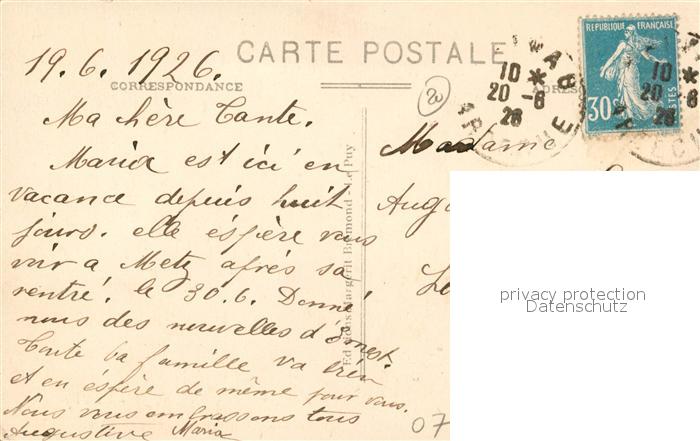 CARTE POSTALE
19.6.1926.
CORRESPONDANCE
ADRES
RÉPUBLIQUE FRANÇAISE
30
POSTES
10 *
20 - 6
26
10 *
20 - 6
26
20
Ma chère Tante.
Maria est ici en
vacance depuis huit
jours. elle éspère vous
voir a Metz après sa
rentré. le 30.6. Donné
nous des nouvelles d'Ernest.
Toute la famille va bien
et en éspère de même pour vous.
Nous vous embrassons tous
Augustine Maria
Madame
Aug
Editions Margerit Brémond - Le Puy
privacy protection
Datenschutz
07